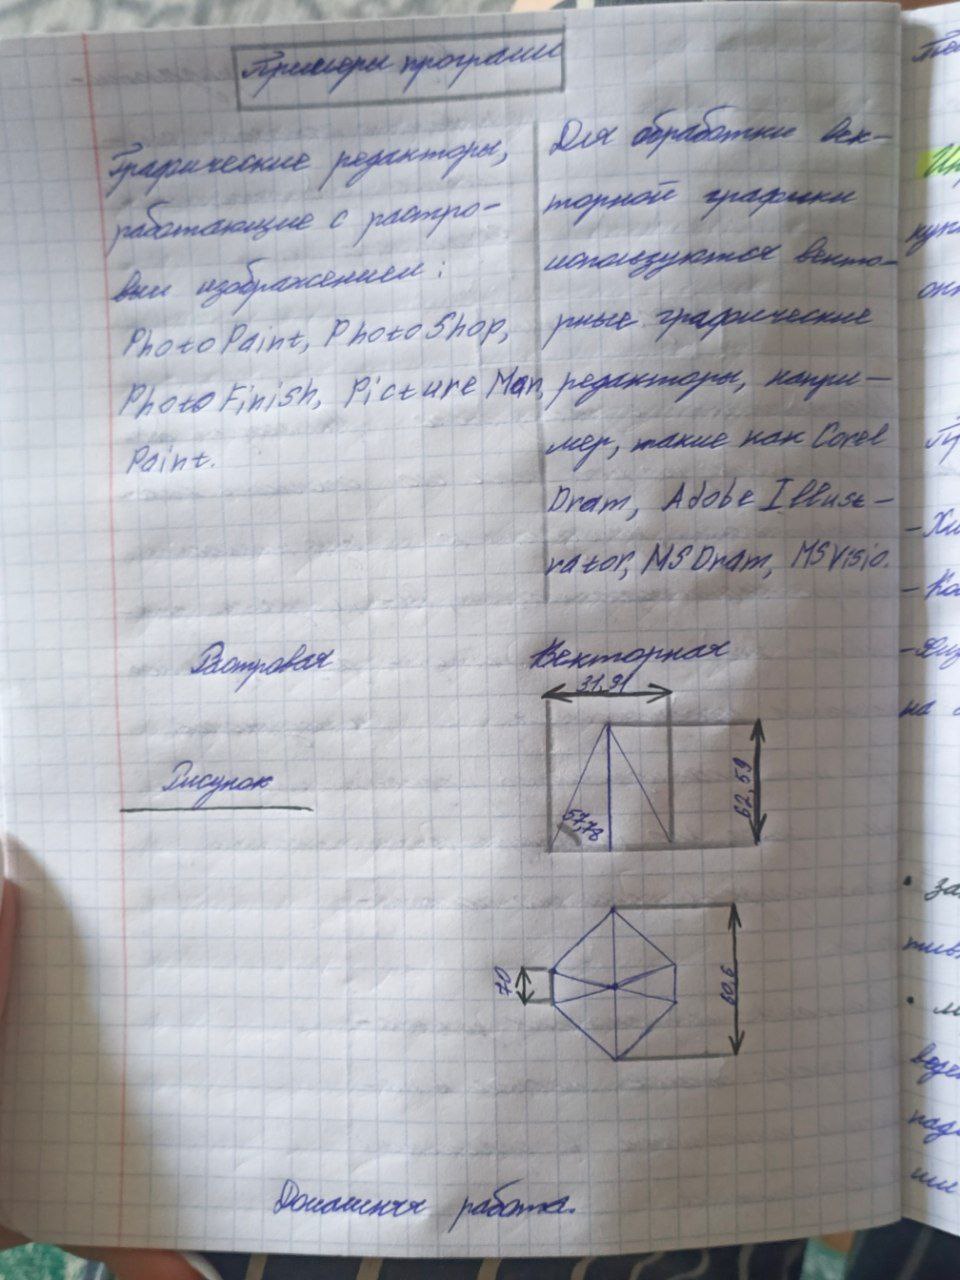 Примеры программ
Графические редакторы,
работающие с растро-
вым изображением:
Photo Paint, Photo Shop,
Photo Finish, Picture Man,
Paint.
Для обработки век-
торной графики
используются векто-
рные графические
редакторы, напри-
мер, такие как Corel
Dram, Adobe Illust-
rator, MS Dram, MS Visio.
Растровая
Векторная
31,91
Рисунок
57,78
62,59
70
60,6
Домашняя работа.